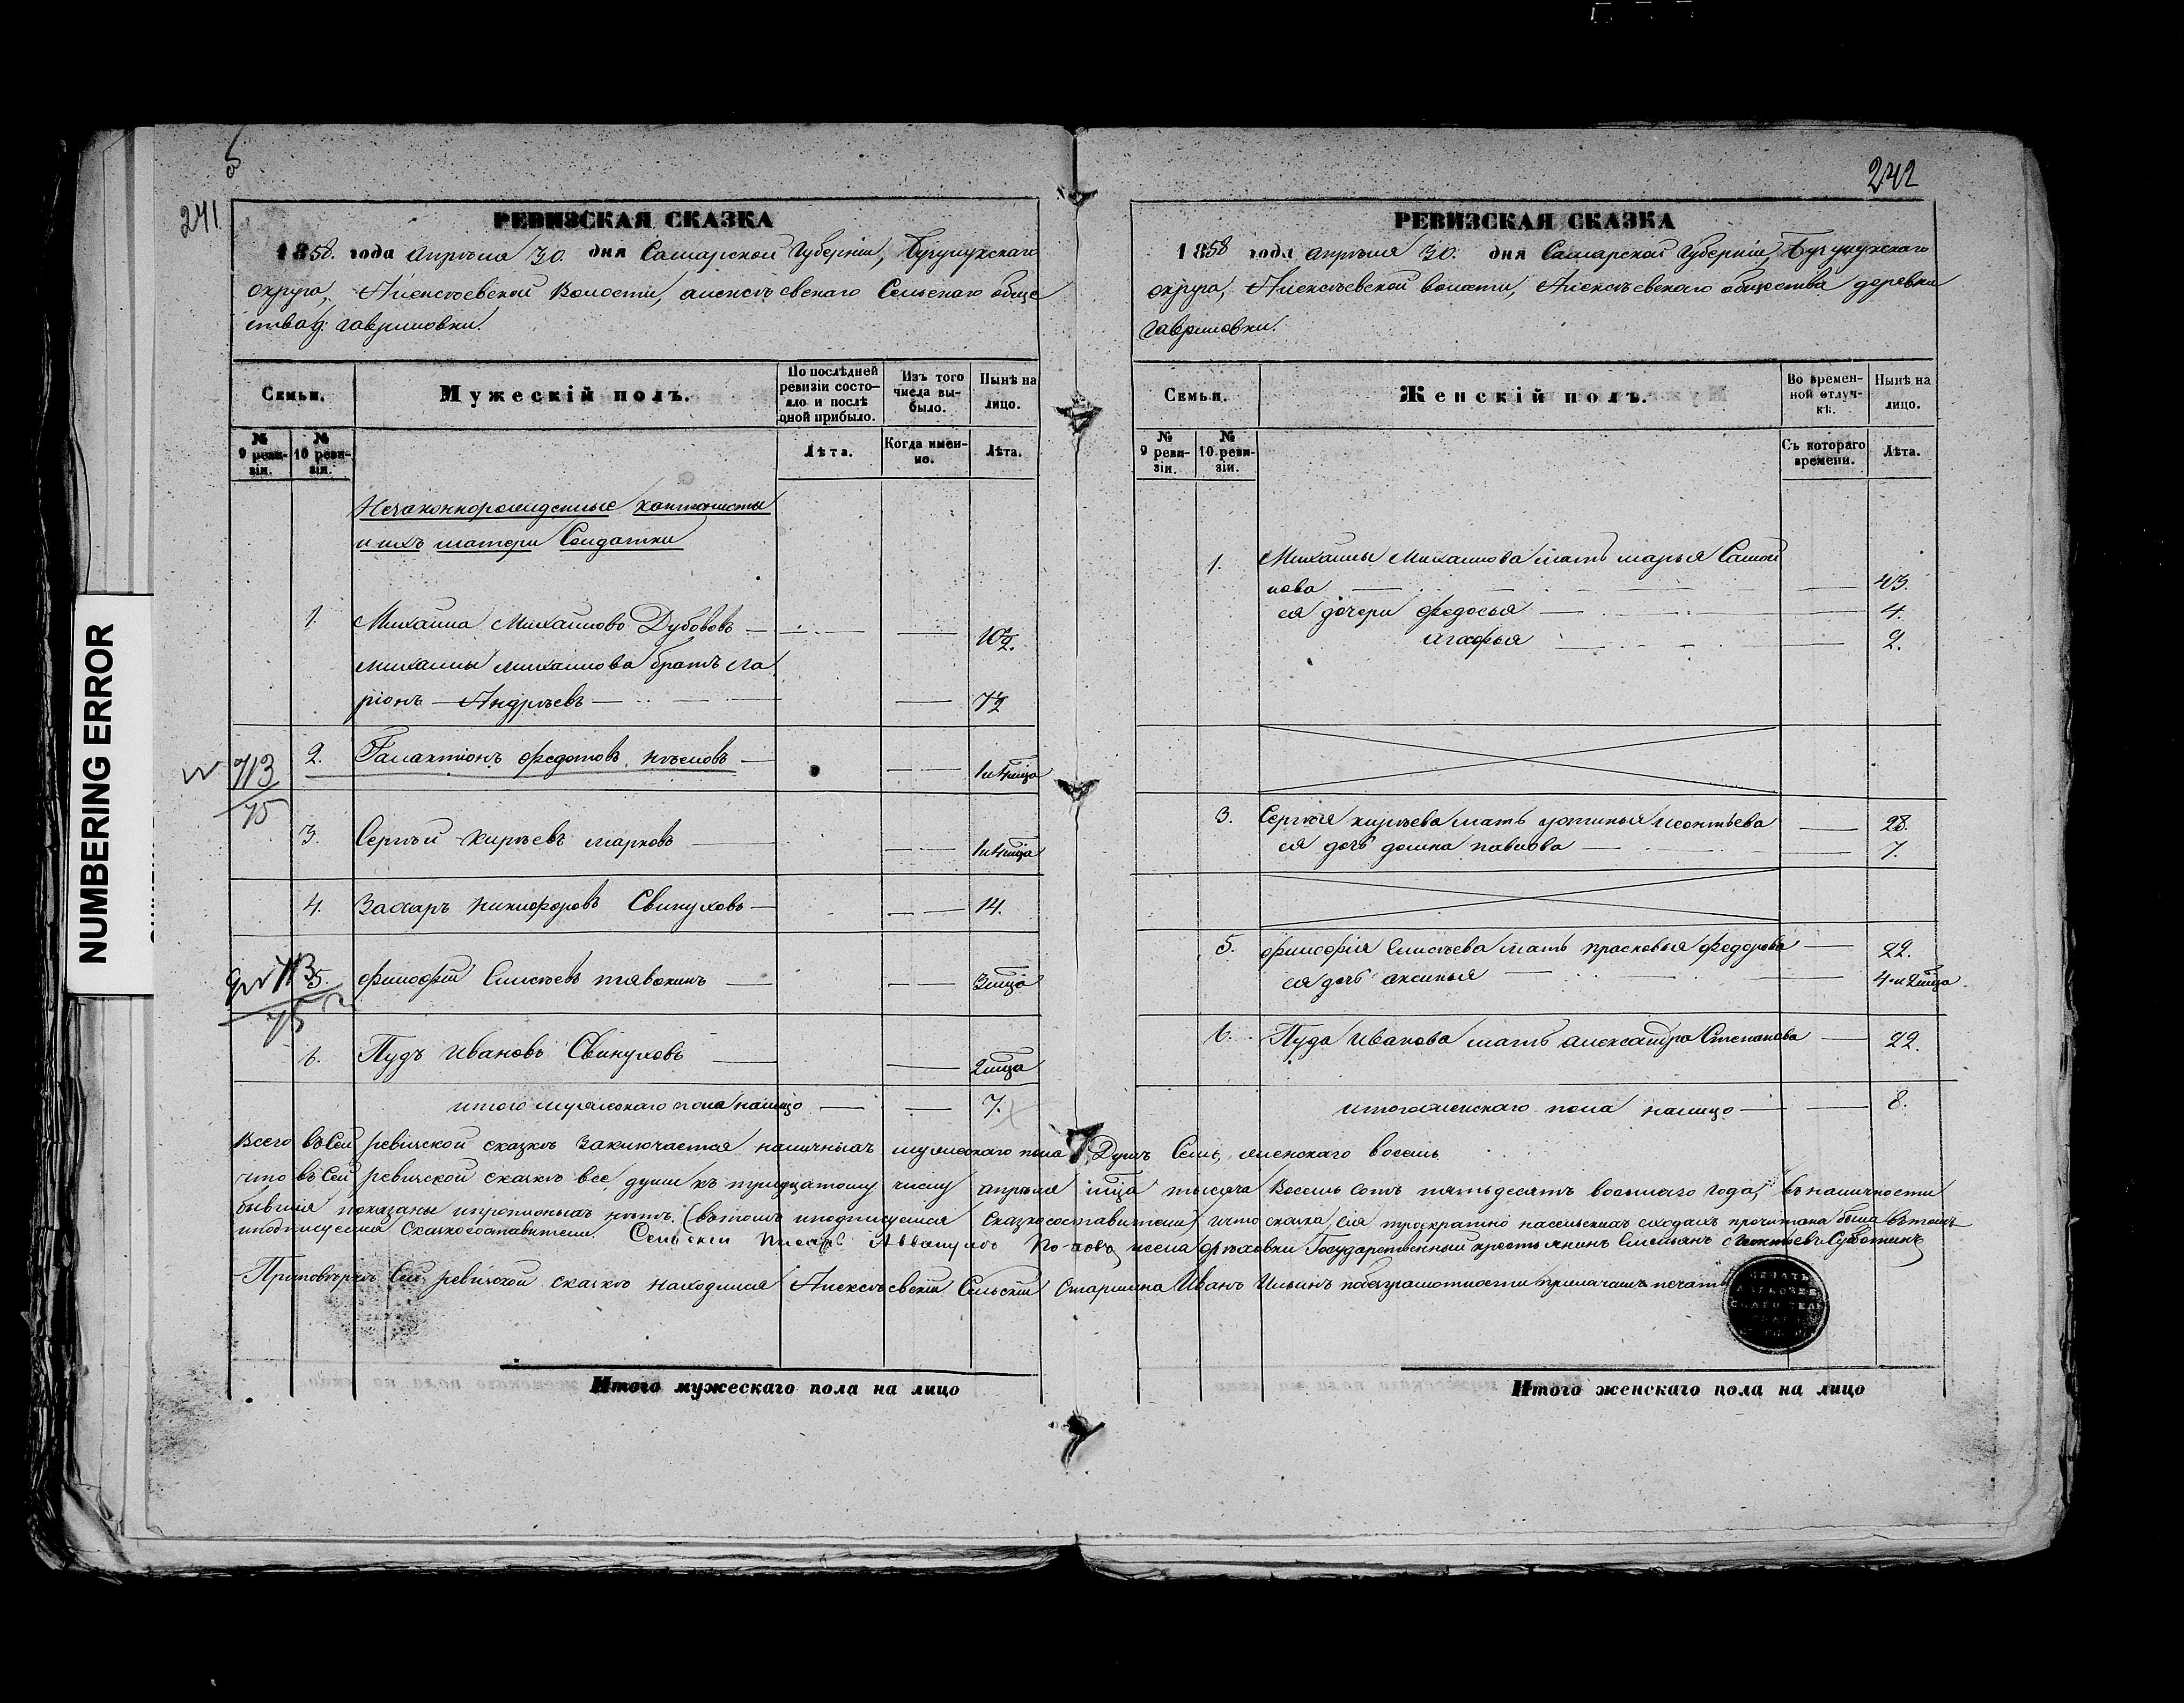 5
241
РЕВИЗСКАЯ СКАЗКА
1858. года апрѣля 30. дня Самарской Губерніи, Бугурусланскаго
округа, Алексѣевской Волости, алексѣевскаго Сельскаго обще
ства д. гавриловки.
Семьи.
Мужескій полъ.
По послѣдней ревизіи состояло и послѣ оной прибыло.
Изъ того числа выбыло.
Нынѣ на лицо.
№ 9 ревизіи.
№ 10 ревизіи.
Лѣта.
Когда именно.
Лѣта.
Незаконнорожденные кантонисты
и ихъ матери Солдатки
1. Михаила Михаиловъ Дубововъ 10½.
михаилы михаилова братъ ла
ріонъ Андрѣевъ 7½
713
75
2. Галактіонъ федотовъ 1 и 4 мца
3. Сергѣй кирѣевъ марковъ 1 и 4 мца
4. Захаръ никифоровъ Свинуховъ 14.
713
75
5. филофій Елисѣевъ 3 мца
6. Пудъ Ивановъ Свинуховъ 2 мца
итого мужескаго пола налицо 7.
242
РЕВИЗСКАЯ СКАЗКА
1858 года апрѣля 30. дня Самарской Губерніи, Бугурусланскаго
округа, Алексѣевской волости, Алексѣевскаго общества деревни
Гавриловки.
Семьи.
Женскій полъ.
Во временной отлучкѣ.
Нынѣ на лицо.
№ 9 ревизіи.
№ 10 ревизіи.
Съ котораго времени.
Лѣта.
1. Михаилы Михаилова мать марья Самои
лова 43.
ея дочери федосья 4.
агафья 2.
3. Сергѣя кирѣева мать устинья леонтьева 28.
ея дочь домна павлова 7.
5. филофія Елисѣева мать прасковья федорова 22.
ея дочь аксинья 4 и 2 мца.
6. Пуда Иванова мать александра Степанова 22.
итого женскаго пола налицо 8.
Всего въ Сей ревизской сказкѣ заключается наличныхъ мужескаго пола 7 Душъ Семь, женскаго восемь.
что въ Сей ревизской сказкѣ все души къ тридцатому числу апрѣля мца тысяча Восемь сотъ пятьдесятъ восьмаго года, въ наличности
бывшія показаны и пропонныхъ нѣтъ. (въ томъ и подписуемся Сказкосоставители) и что сказка сія троекратно на сельскихъ сходахъ прочитана была въ томъ
и подписуемся Сказкосоставители. Сельскій писарь Поповъ Государственный крестьянинъ леонтьевъ Суботинъ
При повѣркѣ Сей ревизской сказкѣ находился Алексѣевскій Сельскій Старшина Иванъ Ильинъ по безграмотности прилагаетъ печать
Итого мужескаго пола на лицо
Итого женскаго пола на лицо
NUMBERING ERROR